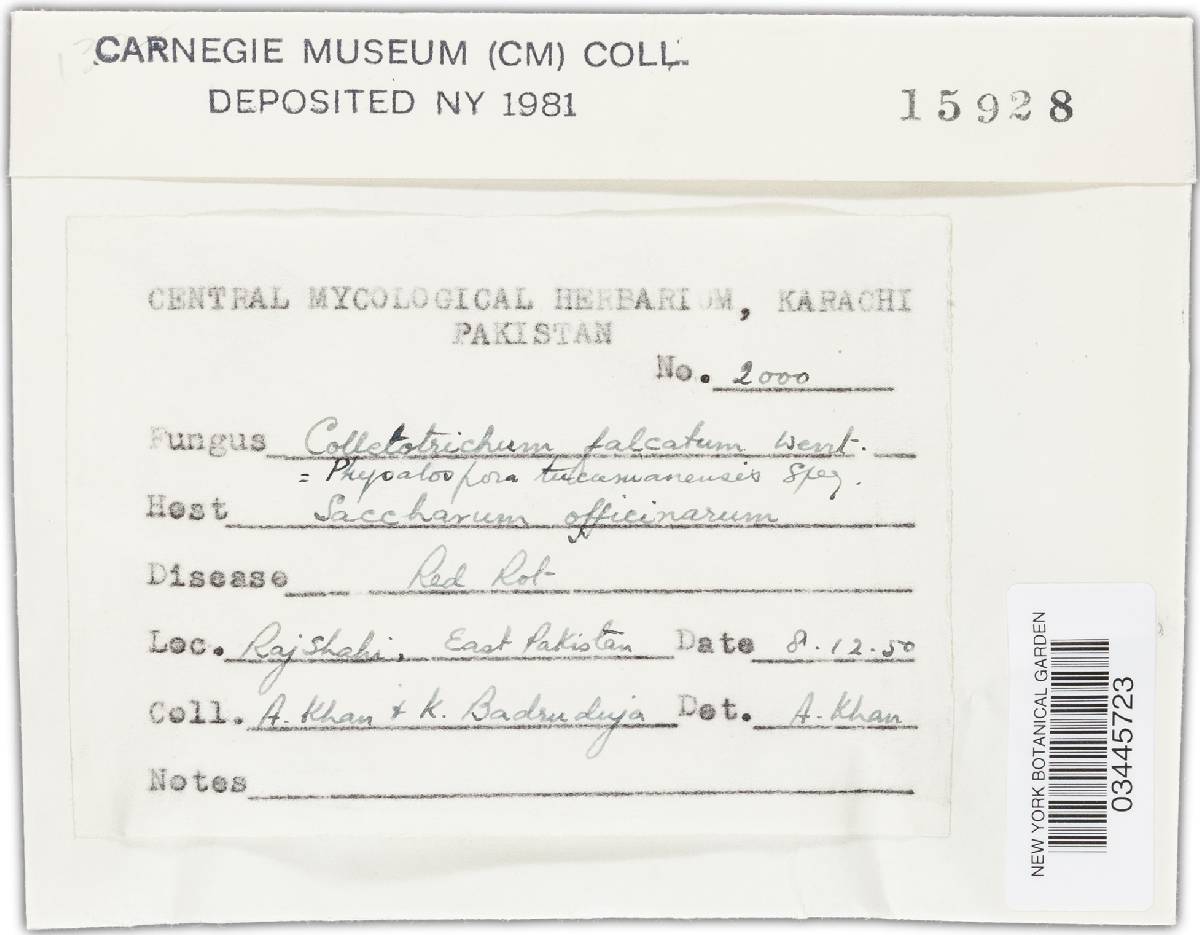 CARNEGIE MUSEUM (CM) COLL.
DEPOSITED NY 1981
15928
CENTRAL MYCOLOGICAL HERBARIUM, KARACHI
PAKISTAN
No. 2000
Fungus Colletotrichum falcatum Went.
= Physalospora tucumanensis Speg.
Host Saccharum officinarum
Disease Red Rot
Loc. Rajshahi, East Pakistan Date 8.12.50
Coll. A. Khan & K. Badruduja Det. A. Khan
Notes
NEW YORK BOTANICAL GARDEN
03445723